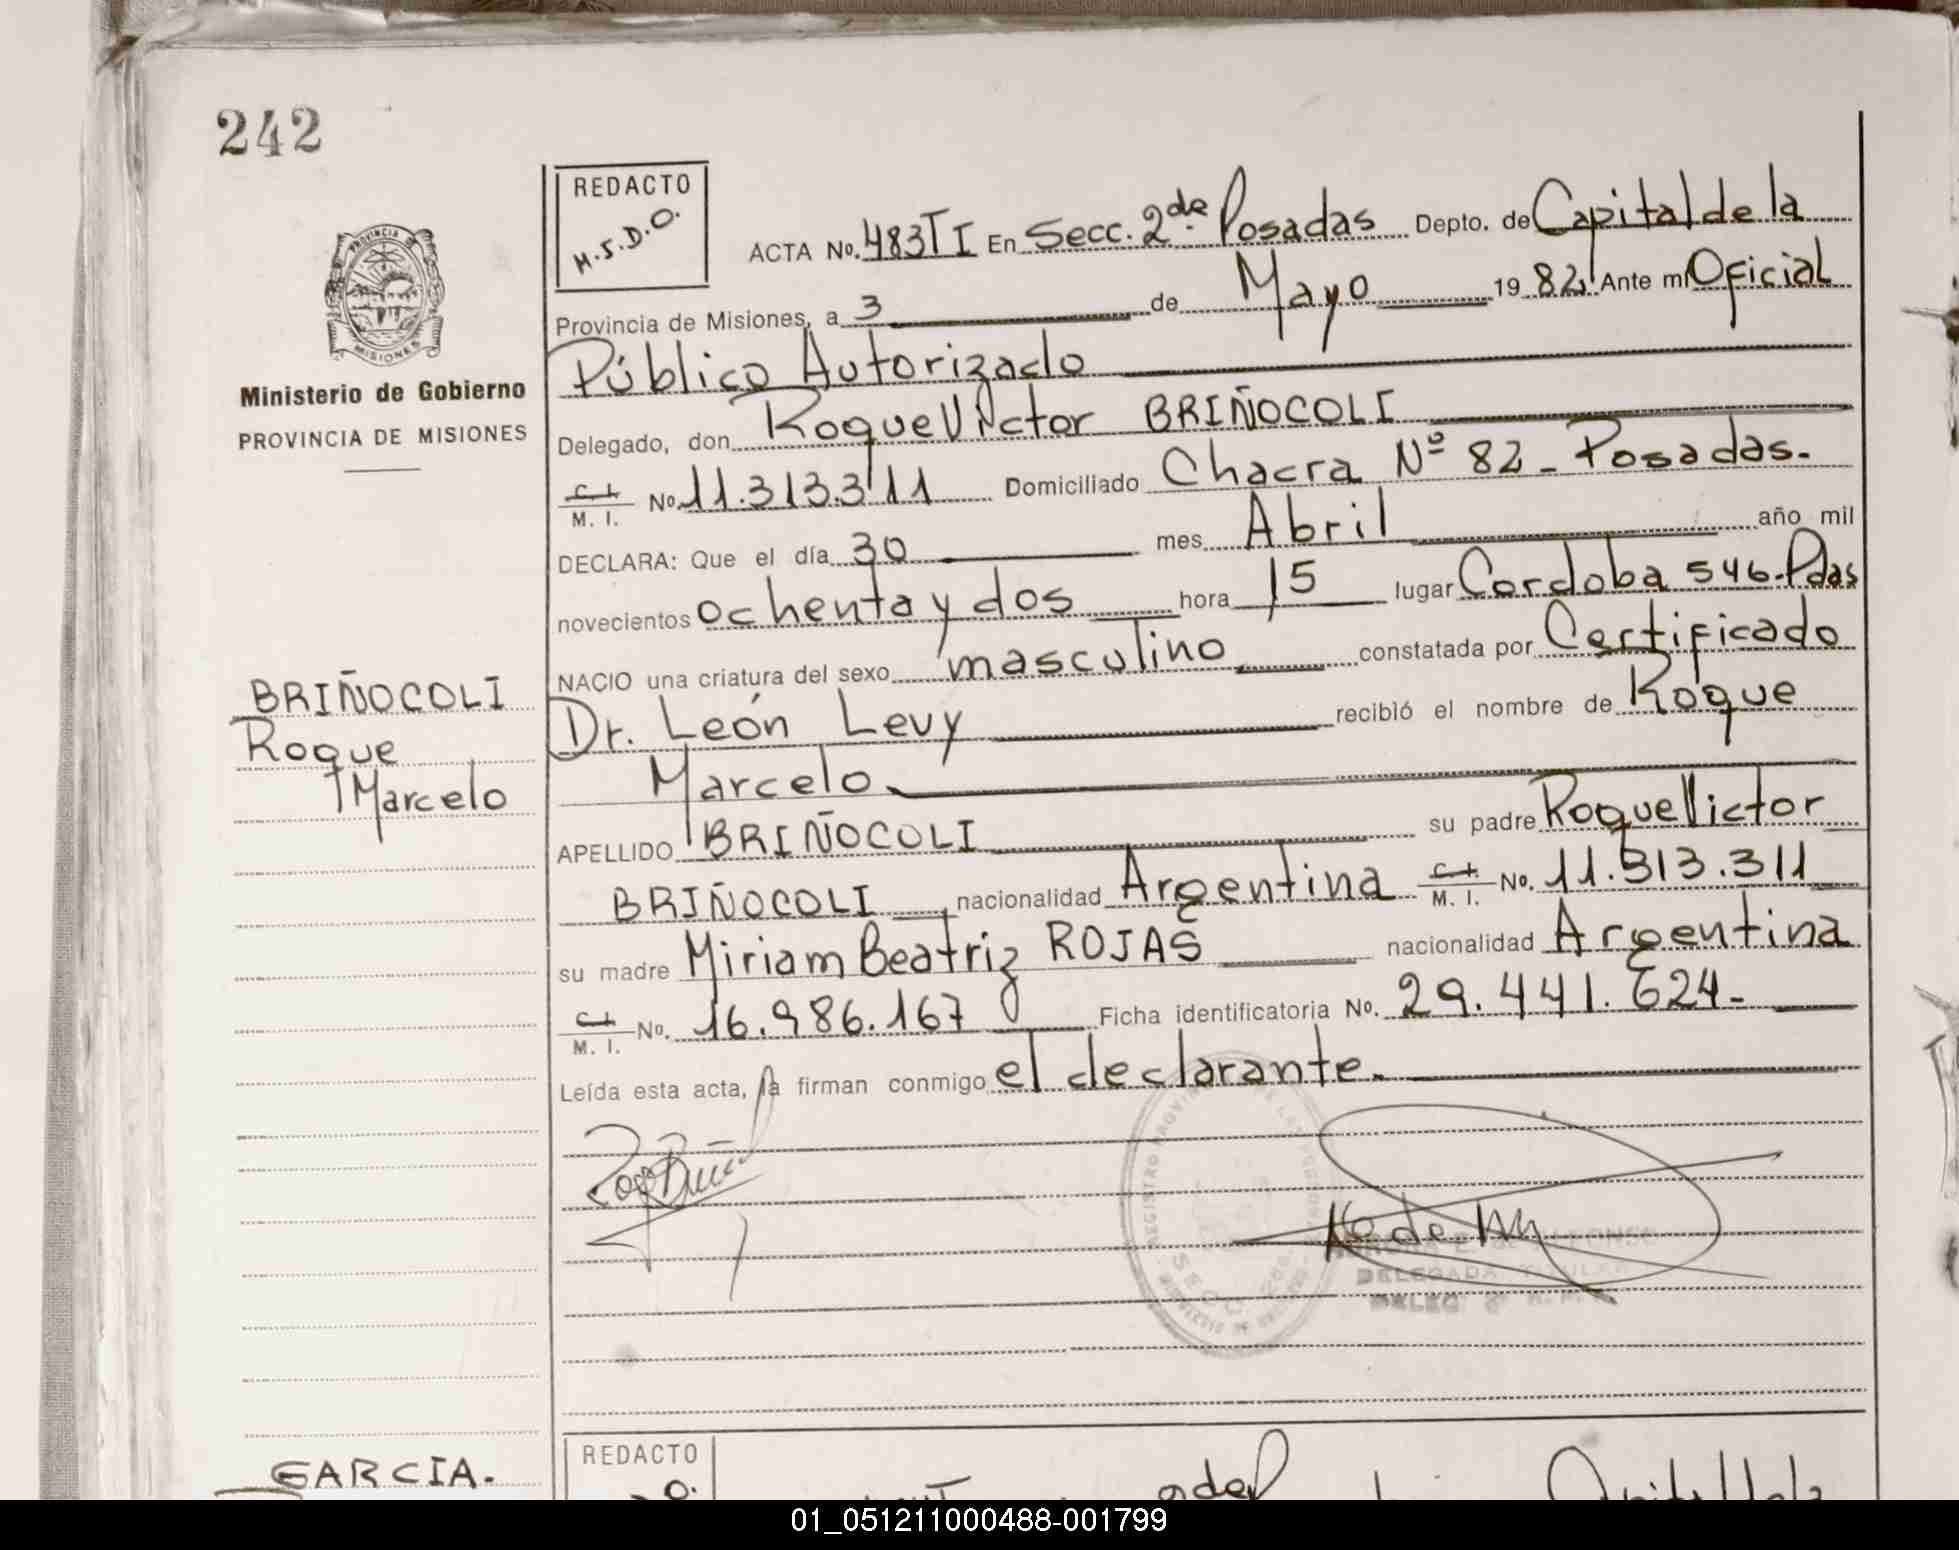 242
REDACTO
M.S.D.O.
ACTA No. 483 T I En Secc. 2da. de Posadas Depto. de Capital de la
Provincia de Misiones, a 3 de Mayo 1982, Ante mí Oficial
Público Autorizado
Delegado, don Roque Victor BRIÑOCOLI
C. I. / M. I. No. 11.313.311 Domiciliado Chacra Nº 82 - Posadas.
DECLARA: Que el día 30 mes Abril año mil
novecientos ochenta y dos hora 15 lugar Cordoba 546. Pdas
NACIO una criatura del sexo masculino constatada por Certificado
Dr. León Levy recibió el nombre de Roque
Marcelo
APELLIDO BRIÑOCOLI su padre Roque Victor
BRIÑOCOLI, nacionalidad Argentina C. I. / M. I. No. 11.313.311
su madre Miriam Beatriz ROJAS nacionalidad Argentina
C. I. / M. I. No. 16.986.167 Ficha identificatoria No. 29.441.624-
Leída esta acta, la firman conmigo el declarante.
PROVINCIA DE
MISIONES
Ministerio de Gobierno
PROVINCIA DE MISIONES
BRIÑOCOLI
Roque
Marcelo
DELEGADA TITULAR
GARCIA.
REDACTO
01_051211000488-001799